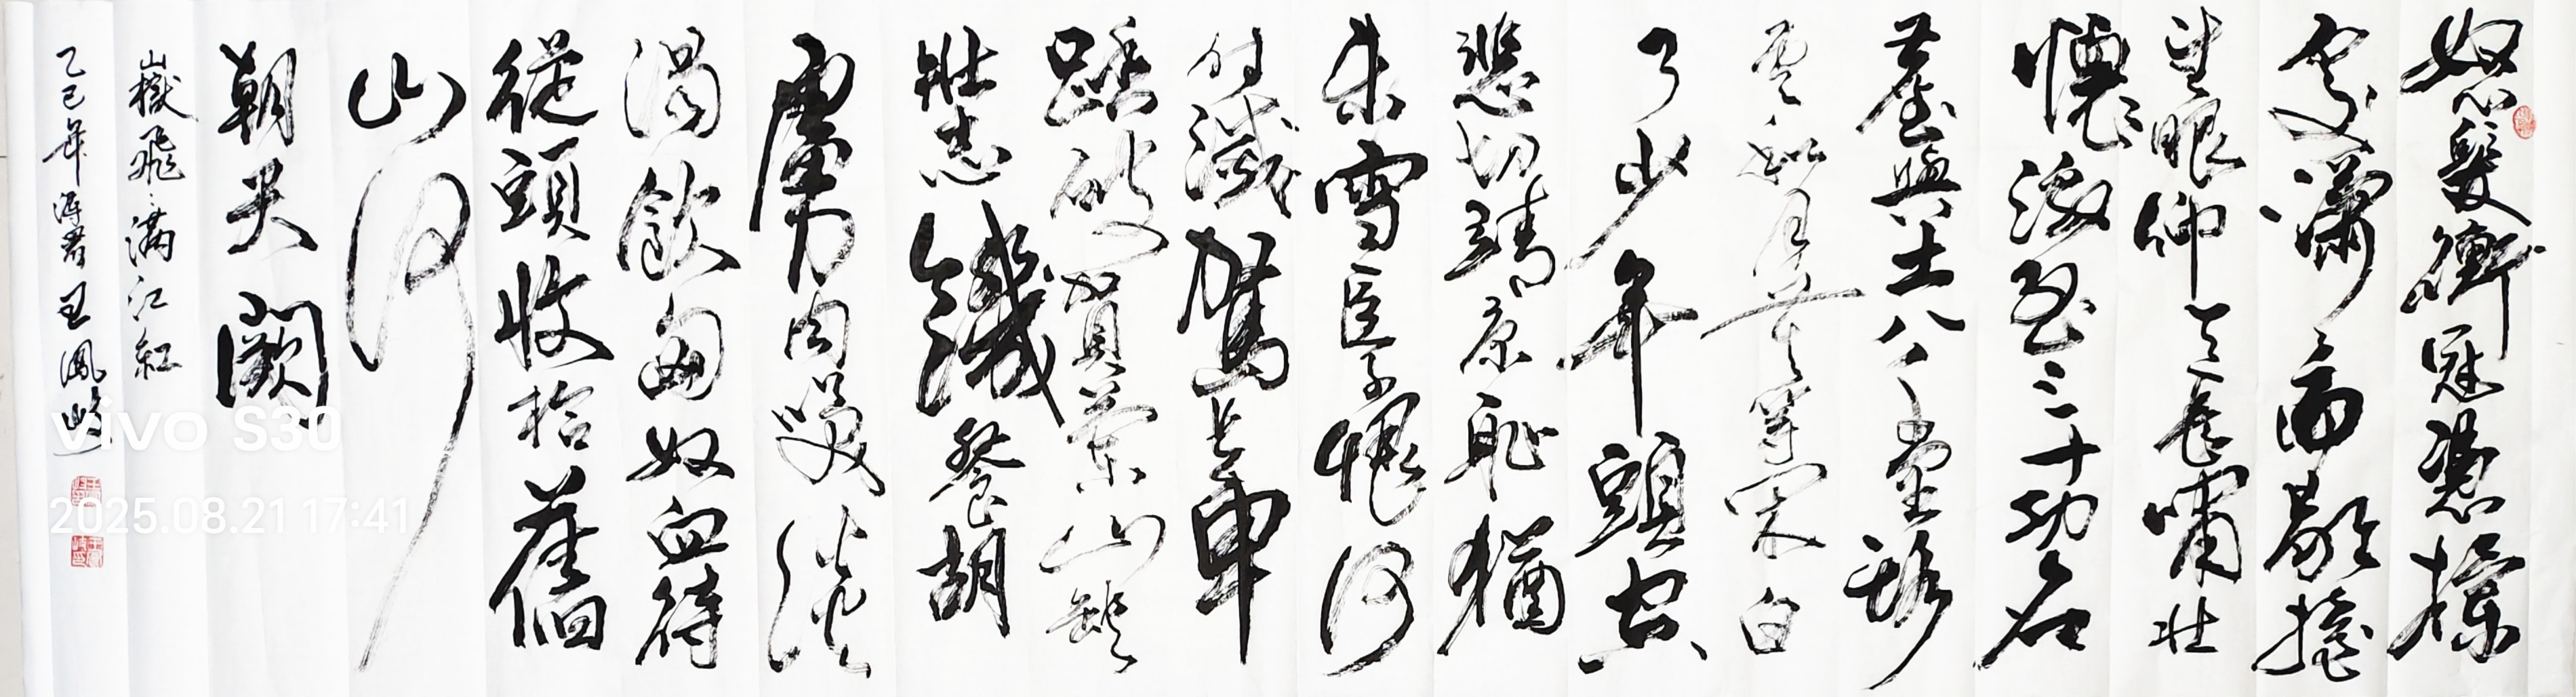 怒髮衝冠憑欄
處瀟瀟雨歇擡
望眼仰天長嘯壯
懷激烈三十功名
塵與土八千里路
雲和月莫等閑白
了少年頭空
悲切靖康恥猶
未雪臣子恨何
時滅駕長車
踏破賀蘭山缺
壯志饑餐胡
虜肉笑談
渴飲匈奴血待
從頭收拾舊
山河
朝天闕
嶽飛滿江紅
乙巳年王鳳
vivo S30
2025.08.21 17:41